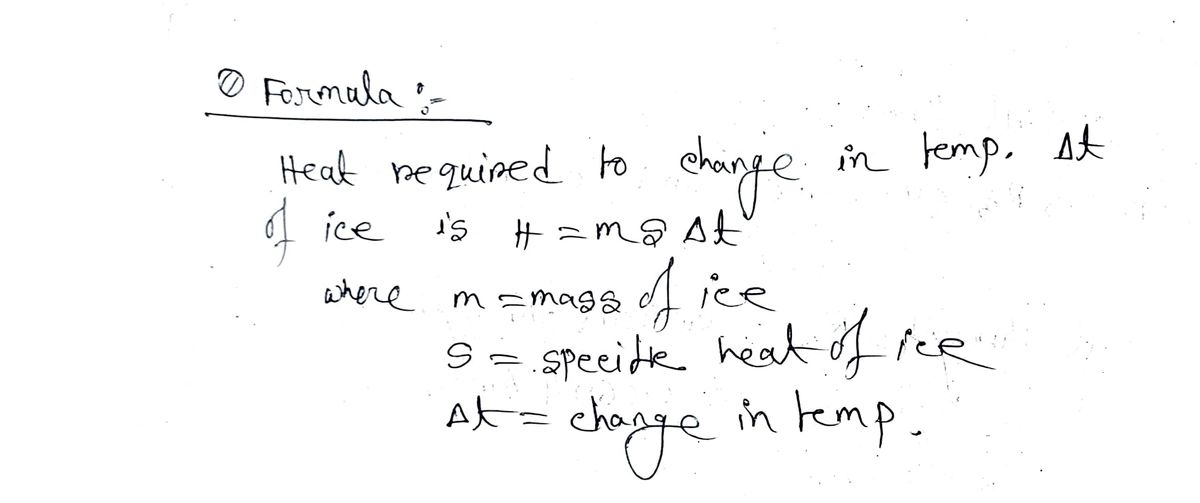 Formula :-
Heat required to change in temp. Δt
of ice is H = ms Δt
where m = mass of ice
S = specific heat of ice
Δt = change in temp.